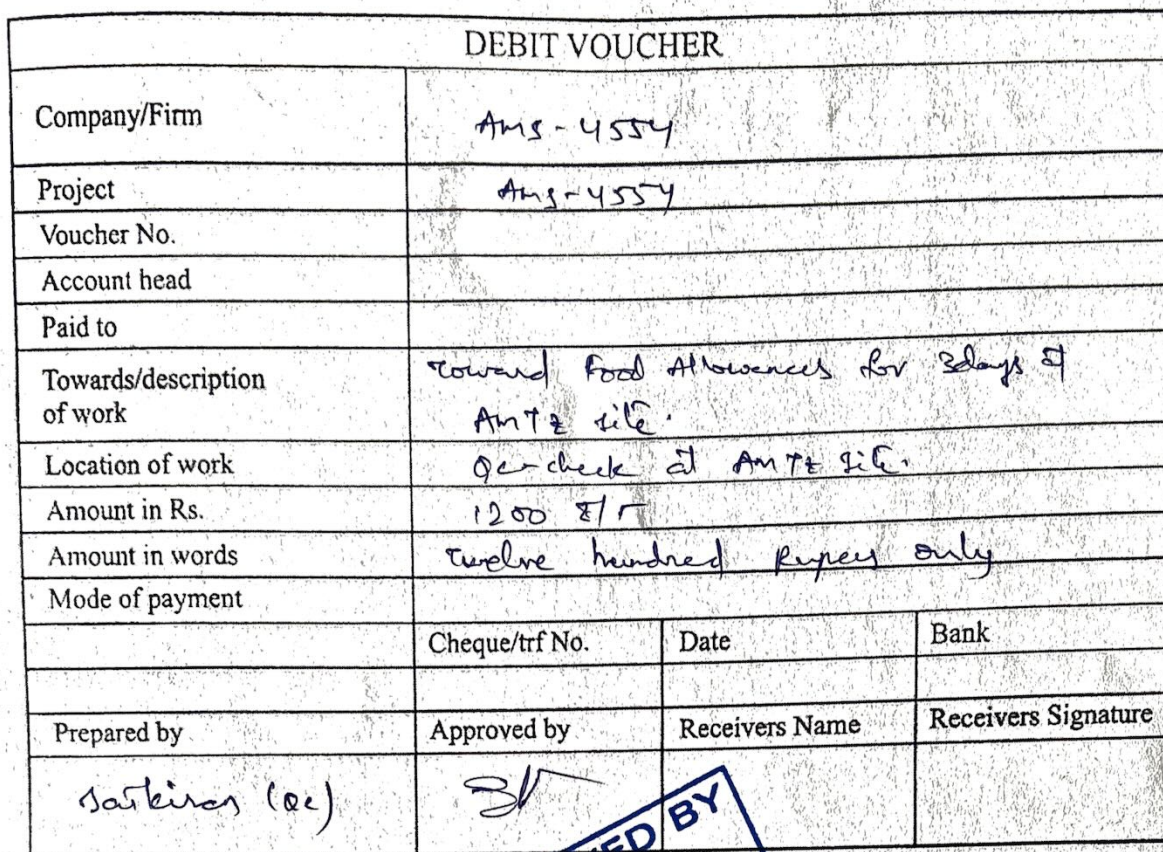 DEBIT VOUCHER
Company/Firm Ams-4554
Project Ams-4554
Voucher No.
Account head
Paid to
Towards/description of work
toward Food Allowances for 3days at
AmTz site.
Location of work Qc-check at AmTz site.
Amount in Rs. 1200
Amount in words twelve hundred Rupees only
Mode of payment
Cheque/trf No. Date Bank
Prepared by Approved by Receivers Name Receivers Signature
saikiran (Qc)
BY